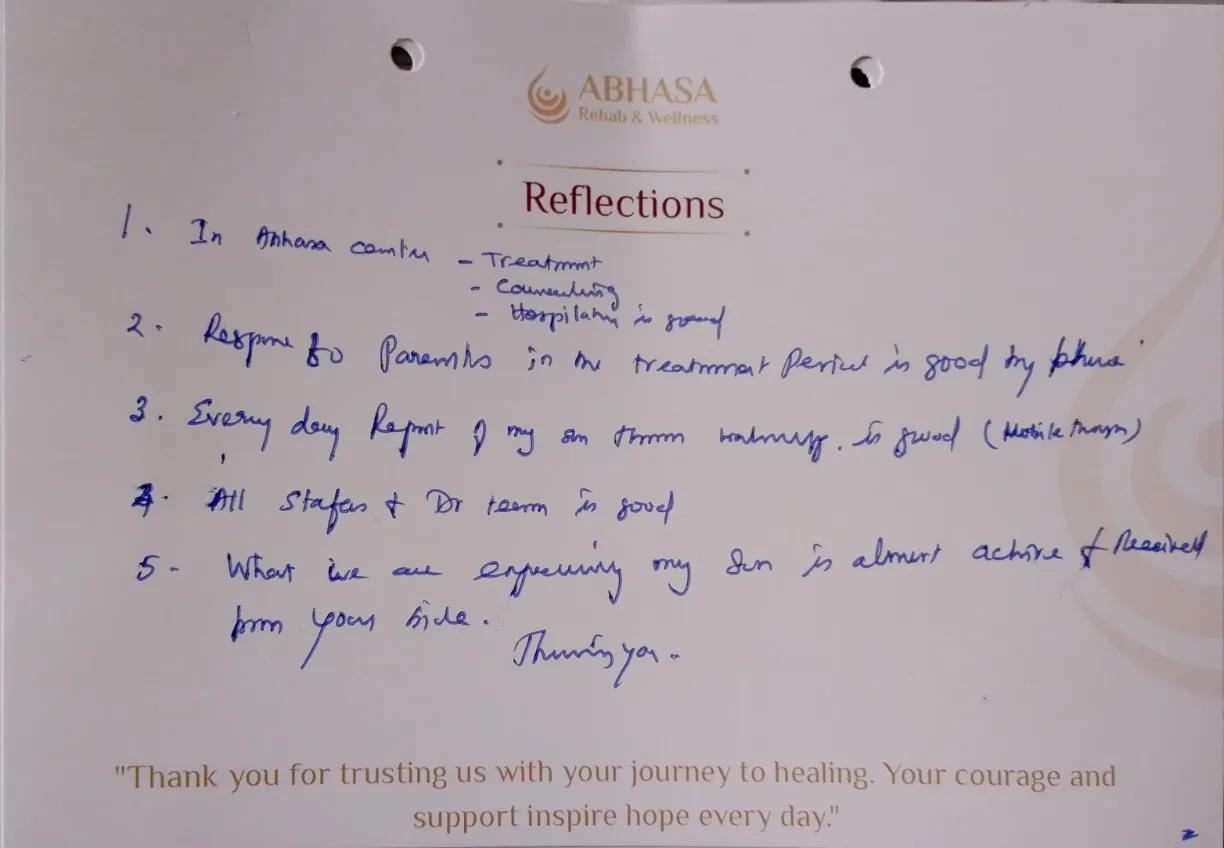 ABHASA
Rehab & Wellness
Reflections
1. In Abhasa centre - Treatment
- Counselling
- Hospitality is good
2. Response to Parents in the treatment Period is good by phone
3. Every day Report of my son from is good (Mobile through)
4. All Staffes & Dr team is good
5 - What we are expecting my Son is almost achive & Received
from your side.
Thanking you.
"Thank you for trusting us with your journey to healing. Your courage and
support inspire hope every day."
2